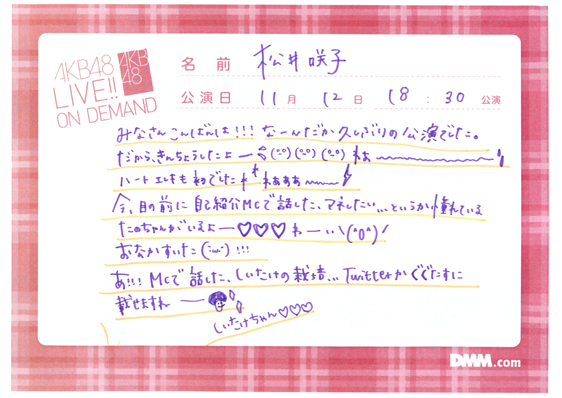 AKB48
LIVE!!
ON DEMAND
AKB
48
名前 松井咲子
公演日 11月 12日 18:30 公演
みなさんこんばんは!!! なーんだか久しぶりの公演でした。
だから、きんちょうしたよー
ハートエレキも初でした
今、目の前に自己紹介MCで話した、マネしたい...というか憧れている
たのちゃんがいるよー♡♡♡ わーい\(^o^)/
おなかすいた(;ω;)!!!
あ!!! MCで話した、しいたけの栽培... Twitterかぐぐたすに
載せますねー
しいたけちゃん♡♡♡
DMM.com